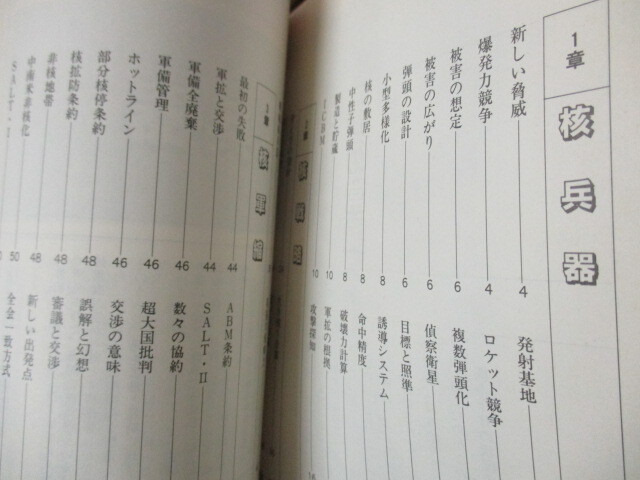 1章
核兵器
新しい脅威 4
爆発力競争 4
被害の想定 6
被害の広がり 6
弾頭の設計 6
小型多様化 8
核の敷居 8
中性子弾頭 8
製造と貯蔵 10
ICBM 10
発射基地
ロケット競争
複数弾頭化
偵察衛星
目標と照準
誘導システム
命中精度
破壊力計算
軍拡の根拠
攻撃探知
核軍備
最初の失敗 44
軍拡と交渉 44
軍備全廃棄 46
軍備管理 46
ホットライン 46
部分核停条約 48
核拡防条約 48
非核地帯 48
中南米非核化 50
SALT・I
ABM条約
SALT・II
数々の協約
超大国批判
交渉の意味
誤解と幻想
審議と交渉
新しい出発点
全会一致方式